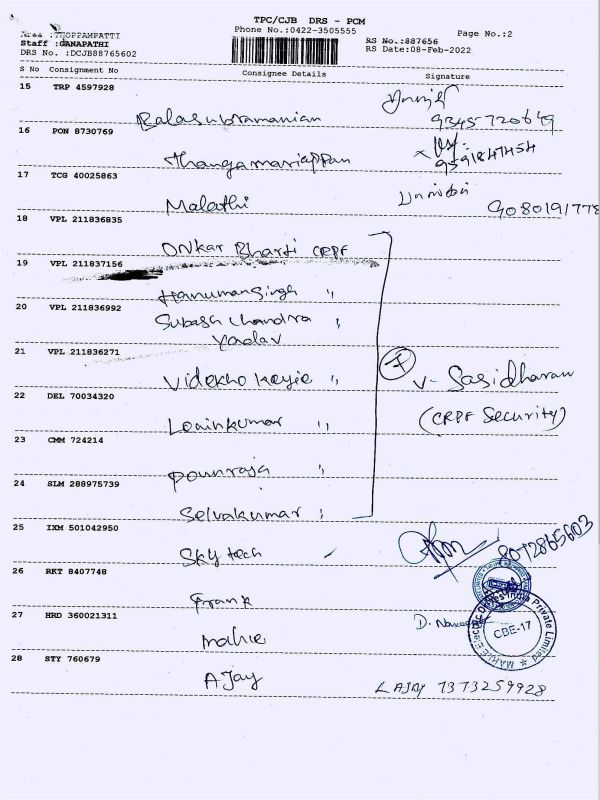 TPC/CJB DRS - PCM
Area :THOPPAMPATTI
Phone No.:0422-3505555
Page No.:2
Staff :GANAPATHI
RS No.:887656
DRS No. :DCJB88765602
RS Date:08-Feb-2022
S No Consignment No Consignee Details Signature
15 TRP 4597928
Balasubramanian 9345720649
16 PON 8730769
Thangamariappan 9591847454
17 TCG 40025863
Malathi 9080191778
18 VPL 211836835
Onkar Bharti CRPF
19 VPL 211837156
Hanumansingh "
20 VPL 211836992
Subash Chandra "
Yadav
21 VPL 211836271
Videkho Keyie "
7 V- Sasidharan
22 DEL 70034320
Leninkumar "
(CRPF Security)
23 CMM 724214
Pounraja "
24 SLM 288975739
Selvakumar "
25 IXM 501042950
Sky tech 8072865603
26 RKT 8407748
Frank
27 HRD 360021311
Mahie
CBE-17
Private Limited
28 STY 760679
AJay
LAJAY 7373259928